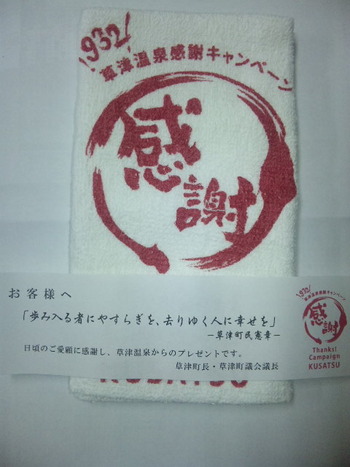 1932!
草津温泉感謝キャンペーン
感謝
お客様へ
「歩み入る者にやすらぎを、去りゆく人に幸せを」
－草津町民憲章－
日頃のご愛顧に感謝し、草津温泉からのプレゼントです。
草津町長・草津町議会議長
1932!
草津温泉感謝キャンペーン
感謝
Thanks!
Campaign
KUSATSU
KUSATSU